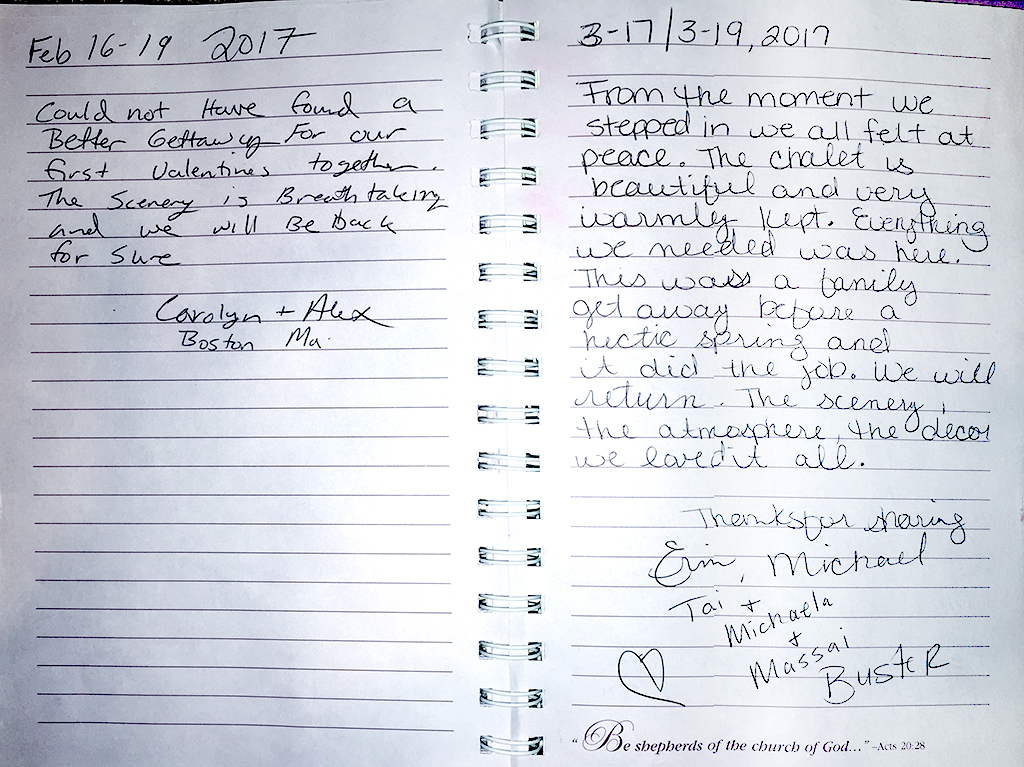 Feb 16-19 2017
Could not Have found a
Better Gettaway For our
first Valentines together.
The Scenery is Breathtaking
and we will Be back
for Sure
Carolyn + Alex
Boston Ma.
3-17/3-19, 2017
From the moment we
stepped in we all felt at
peace. The chalet is
beautiful and very
warmly kept. Everything
we needed was here.
This was a family
get away before a
hectic spring and
it did the job. We will
return. The scenery,
the atmosphere, the decor
we loved it all.
Thanks for sharing
Erin, Michael
Tai +
Michaela
+
Massai
Buster
"Be shepherds of the church of God..." –Acts 20:28